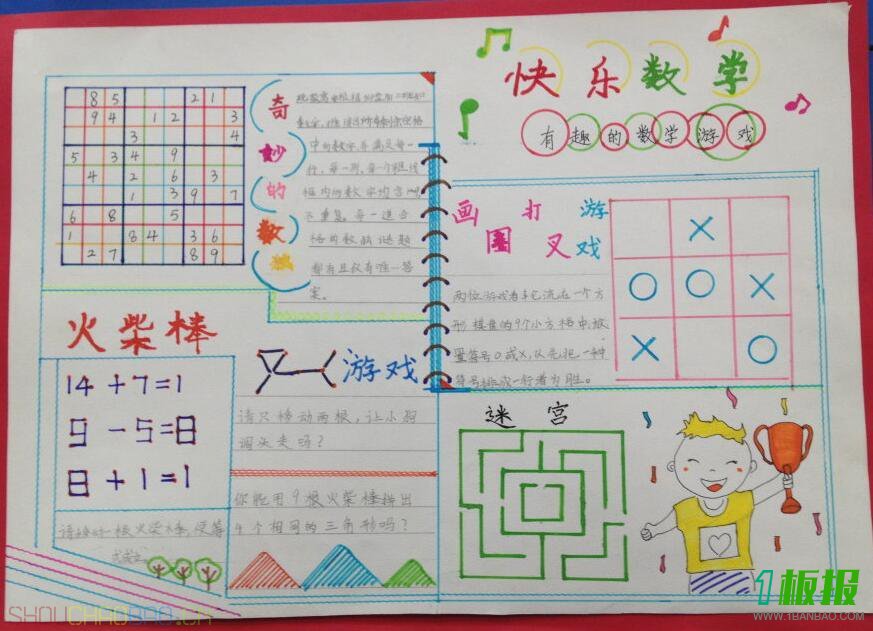 快乐数学
有趣的数学游戏
8 5 2 1
9 4 1 2 3
3 4
5 3 4 9
4 2 6 3
1 3 9 7
6 8 5
1 8 4 3 6
2 7 8 9
奇妙的数独
数字,推理出所有剩余空格
中的数字,并满足每一
行、每一列、每个粗线
框内的数字均含1-9,
不重复。每一道合
格的数独谜题
都有且仅有唯一答
案。
画圈打叉游戏
两位游戏者轮流在一个方
形棋盘的9个小方格中,放
置符号O或X,以先把一种
符号排成一行者为胜。
X
O O X
X O
火柴棒
游戏
14+7=1
9-5=8
8+1=1
请移动一根火柴棒,使等
式成立
请只移动两根,让小狗
调头走吗?
你能用9根火柴棒拼出
4个相同的三角形吗?
迷宫
SHOUCHAOBAO.CN
1板报
WWW.1BANBAO.COM